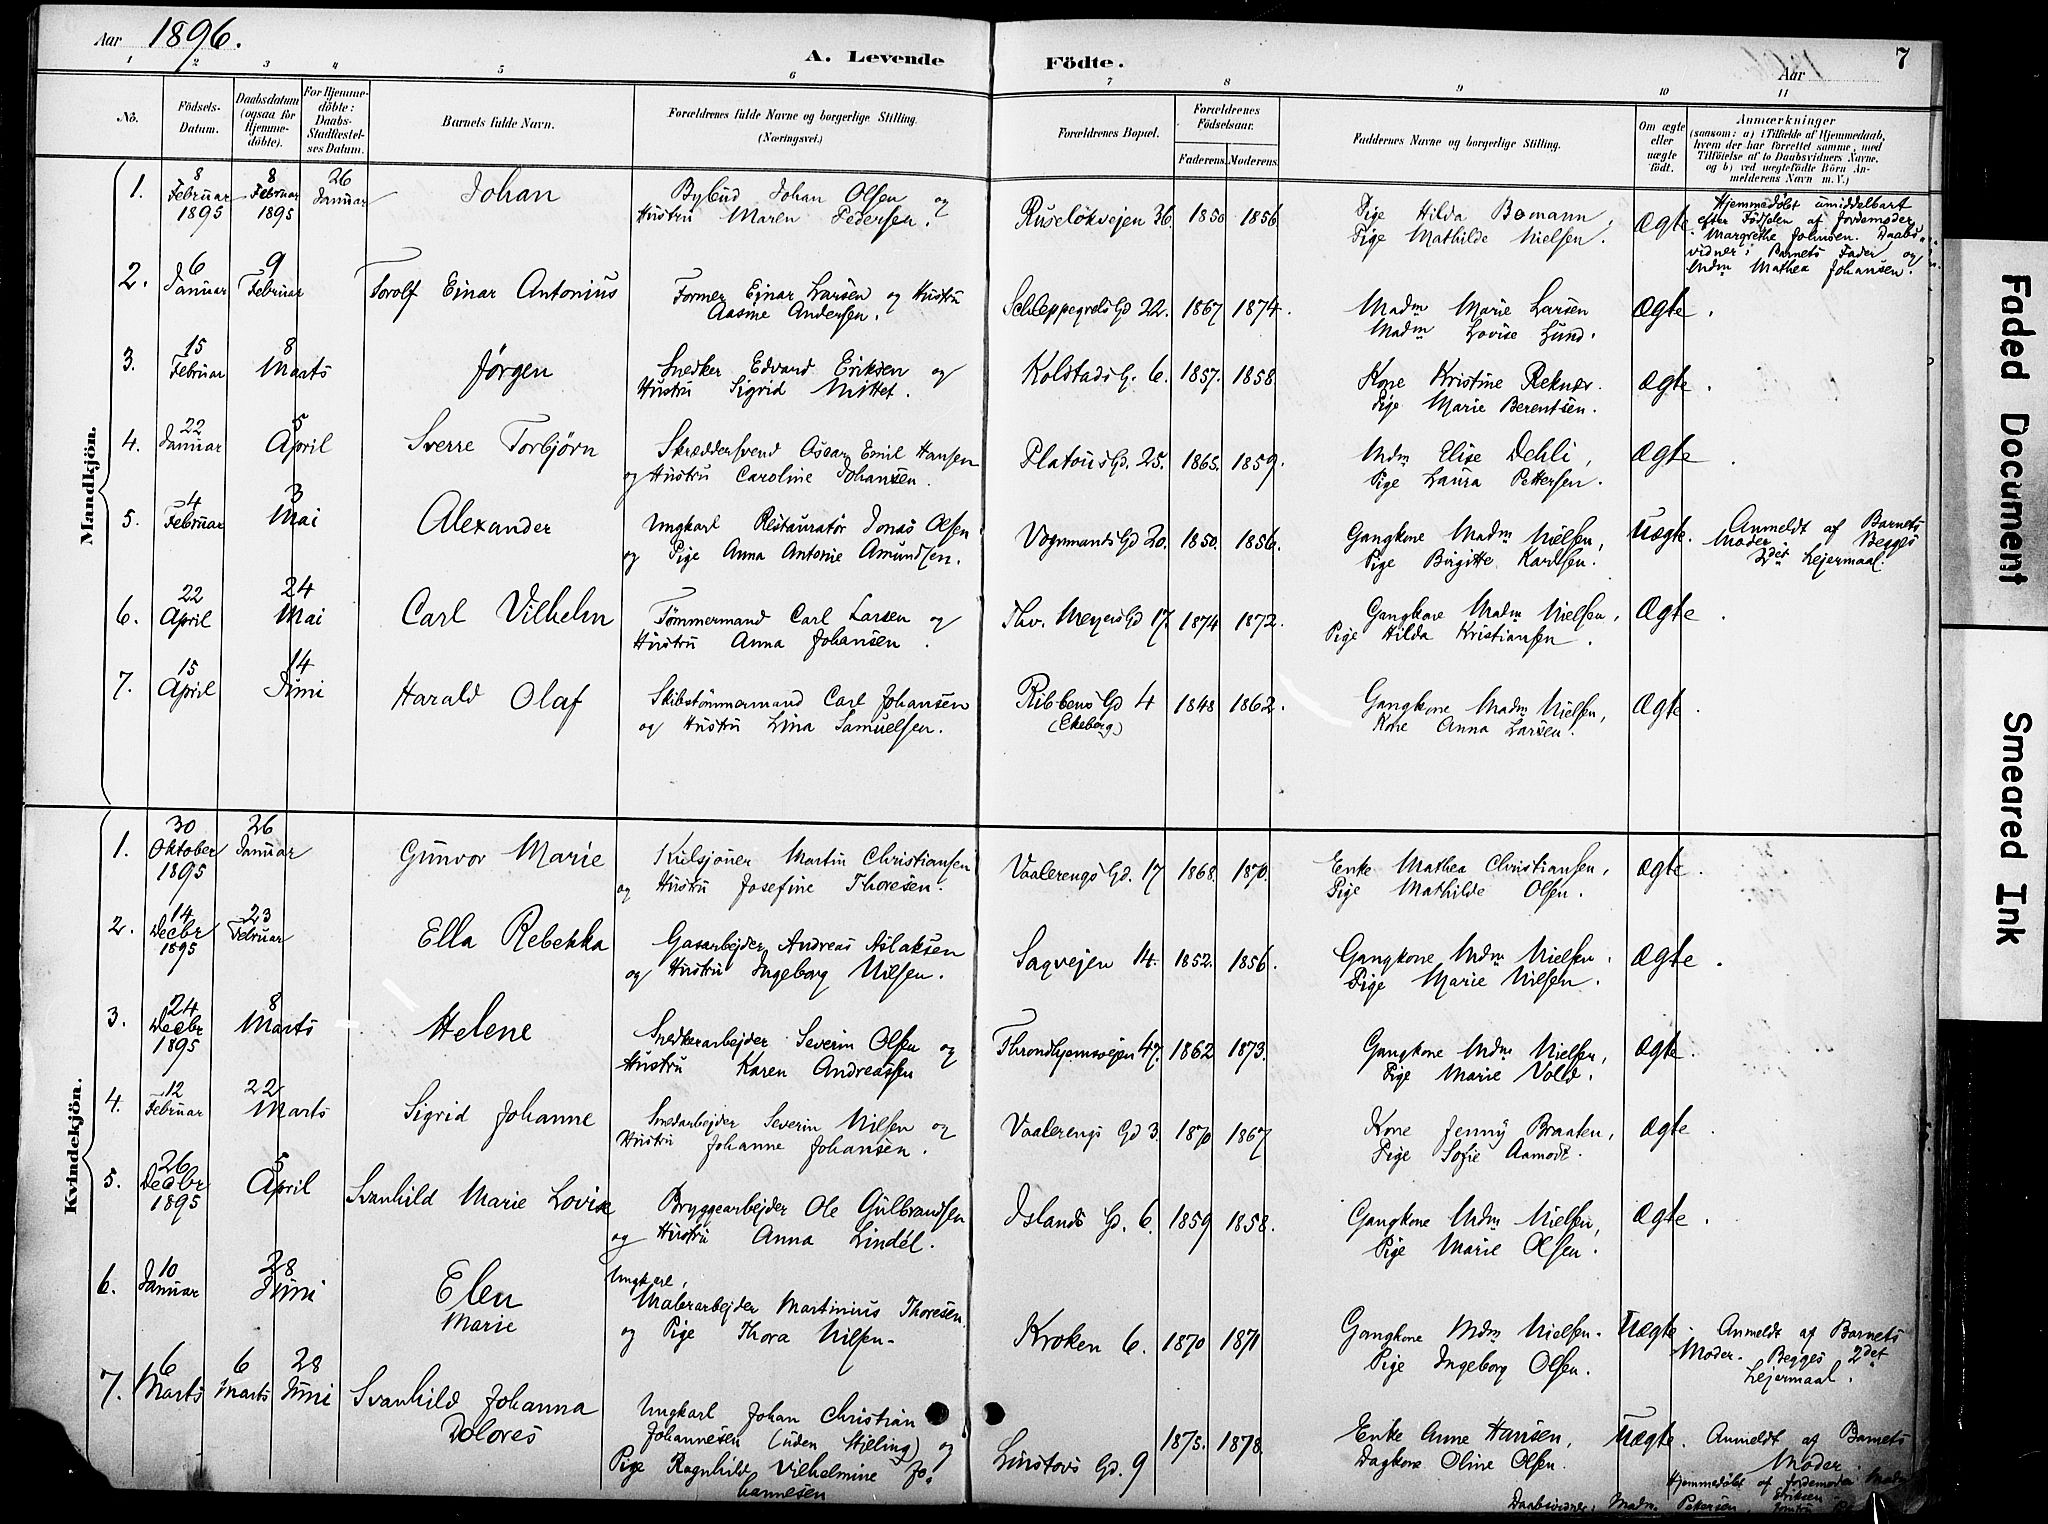 Aar 1896.
A. Levende Födte.
Aar
7
1 2 3 4 5 6 7 8 9 10 11
No.
Födsels-Datum.
Daabsdatum (ogsaa for Hjemme-döbte).
For Hjemme-döbte: Daabs-Stadfæstel-ses Datum.
Barnets fulde Navn.
Forældrenes fulde Navne og borgerlige Stilling.
(Næringsvei.)
Forældrenes Bopæl.
Forældrenes Födselsaar.
Faderens. Moderens.
Faddernes Navne og borgerlige Stilling.
Om ægte eller uægte födt.
Anmærkninger
(saasom: a) i Tilfælde af Hjemmedaab,
hvem der har forrettet samme, med
Tilföielse af to Daabsvidners Navne.
og b) ved uægtefödte Börn An-
melderens Navn m. V.)
Mandkjön.
1. 8 Februar 1895 8 Februar 1895 26 Januar Johan
Bybud Johan Olsen og
Hustru Maren Pedersen.
Ruseløkvejen 36. 1850 1856.
Pige Hilda Bomann,
Pige Mathilde Nielsen.
Ægte
Hjemmedøbt umiddelbart
efter Fødselen af Jordemoder
Margrethe Johnsen. Daabs-
vidner: Barnets Fader og
Mdm Mathea Johansen.
2. 6 Januar 9 Februar Torolf Einar Antonius
Former Einar Larsen og Hustru
Aasine Andersen.
Schleppegrels Gd 22. 1867 1874.
Madm Marie Larsen
Madm Lovise Lund.
Ægte.
3. 15 Februar 8 Marts Jørgen
Snedker Edvard Eriksen og
Hustru Sigrid Mittet.
Kolstads G. 6. 1857. 1858.
Kone Kristine Reknær.
Pige Marie Berentsen.
Ægte.
4. 22 Januar 5 April Sverre Torbjørn
Skræddersvend Oscar Emil Hansen
og Hustru Caroline Johansen.
Platous Gd. 25. 1865. 1859.
Mdm Elise Dehli,
Pige Laura Pettersen.
Ægte.
5. 4 Februar 3 Mai Alexander
Ungkarl Restauratør Jonas Olsen
og Pige Anna Antonie Amundsen.
Vognmands Gd 20. 1850. 1856.
Gangkone Madm Nielsen,
Pige Birgitte Karlsen.
Uægte.
Anmeldt af Barnets
Moder Begges
2det Lejermaal.
6. 22 April 24 Mai Carl Vilhelm
Tømmermand Carl Larsen og
Hustru Anna Johansen.
Thv. Meyers Gd 17. 1874 1872.
Gangkone Madm Nielsen,
Pige Hilda Kristiansen.
Ægte.
7. 15 April 14 Juni Harald Olaf
Skibstømmermand Carl Johansen
og Hustru Lina Samuelsen.
Ribbens Gd 4
(Ekeberg)
1848 1862.
Gangkone Madm Nielsen,
Kone Anna Larsen.
Ægte.
Kvindekjön.
1. 30 Oktober 1895 26 Januar Gunvor Marie
Kulsjouer Martin Christiansen
og Hustru Josefine Thoresen.
Vaalerengs Gd. 17 1868. 1870.
Enke Mathea Christiansen,
Pige Mathilde Olsen.
Ægte.
2. 14 Decbr 1895 23 Februar Ella Rebekka
Gasarbejder Andreas Aslaksen
og Hustru Ingeborg Nilsen.
Sagvejen 14. 1852. 1856.
Gangkone Mdm Nielsen.
Pige Marie Nilsen.
Ægte.
3. 24 Decbr 1895 8 Marts Helene
Snedkerarbejder Severin Olsen og
Hustru Karen Andreassen
Throndhjemsvejen 47. 1862 1873.
Gangkone Mdm Nielsen,
Pige Marie Vold.
Ægte.
4. 12 Februar 22 Marts Sigrid Johanne
Smedarbejder Severin Nilsen og
Hustru Johanne Johansen.
Vaalerengs Gd 3. 1870 1867
Kone Jenny Braaten,
Pige Sofie Aamodt.
Ægte.
5. 26 Decbr 1895 5 April Svanhild Marie Lovise
Bryggearbejder Ole Gulbrandsen
og Hustru Anna Lindél.
Islands Gd. 6. 1859 1858.
Gangkone Mdm Nielsen,
Pige Marie Olsen.
Ægte.
6. 10 Januar 28 Juni Elen Marie
Ungkarl,
Malerarbejder Martinius Thoresen
og Pige Thora Nilsen.
Kroken 6. 1870 1871
Gangkone Mdm Nielsen.
Pige Ingeborg Olsen.
Uægte.
Anmeldt af Barnets
Moder. Begges 2det
Lejermaal.
7. 6 Marts 6 Marts 28 Juni Svanhild Johanna Dolores
Ungkarl Johan Christian
Johannesen (uden Stilling) og
Pige Ragnhild Vilhelmine Jo-
hannesen
Linstows Gd. 9 1875. 1878.
Enke Anne Hansen,
Dagkone Oline Olsen.
Uægte.
Anmeldt af Barnets
Moder.
Hjemmedøbt af Jordemoder Madm
Eriksen
Daabsvidner: Madm. Petersen
Faded Document
Smeared Ink